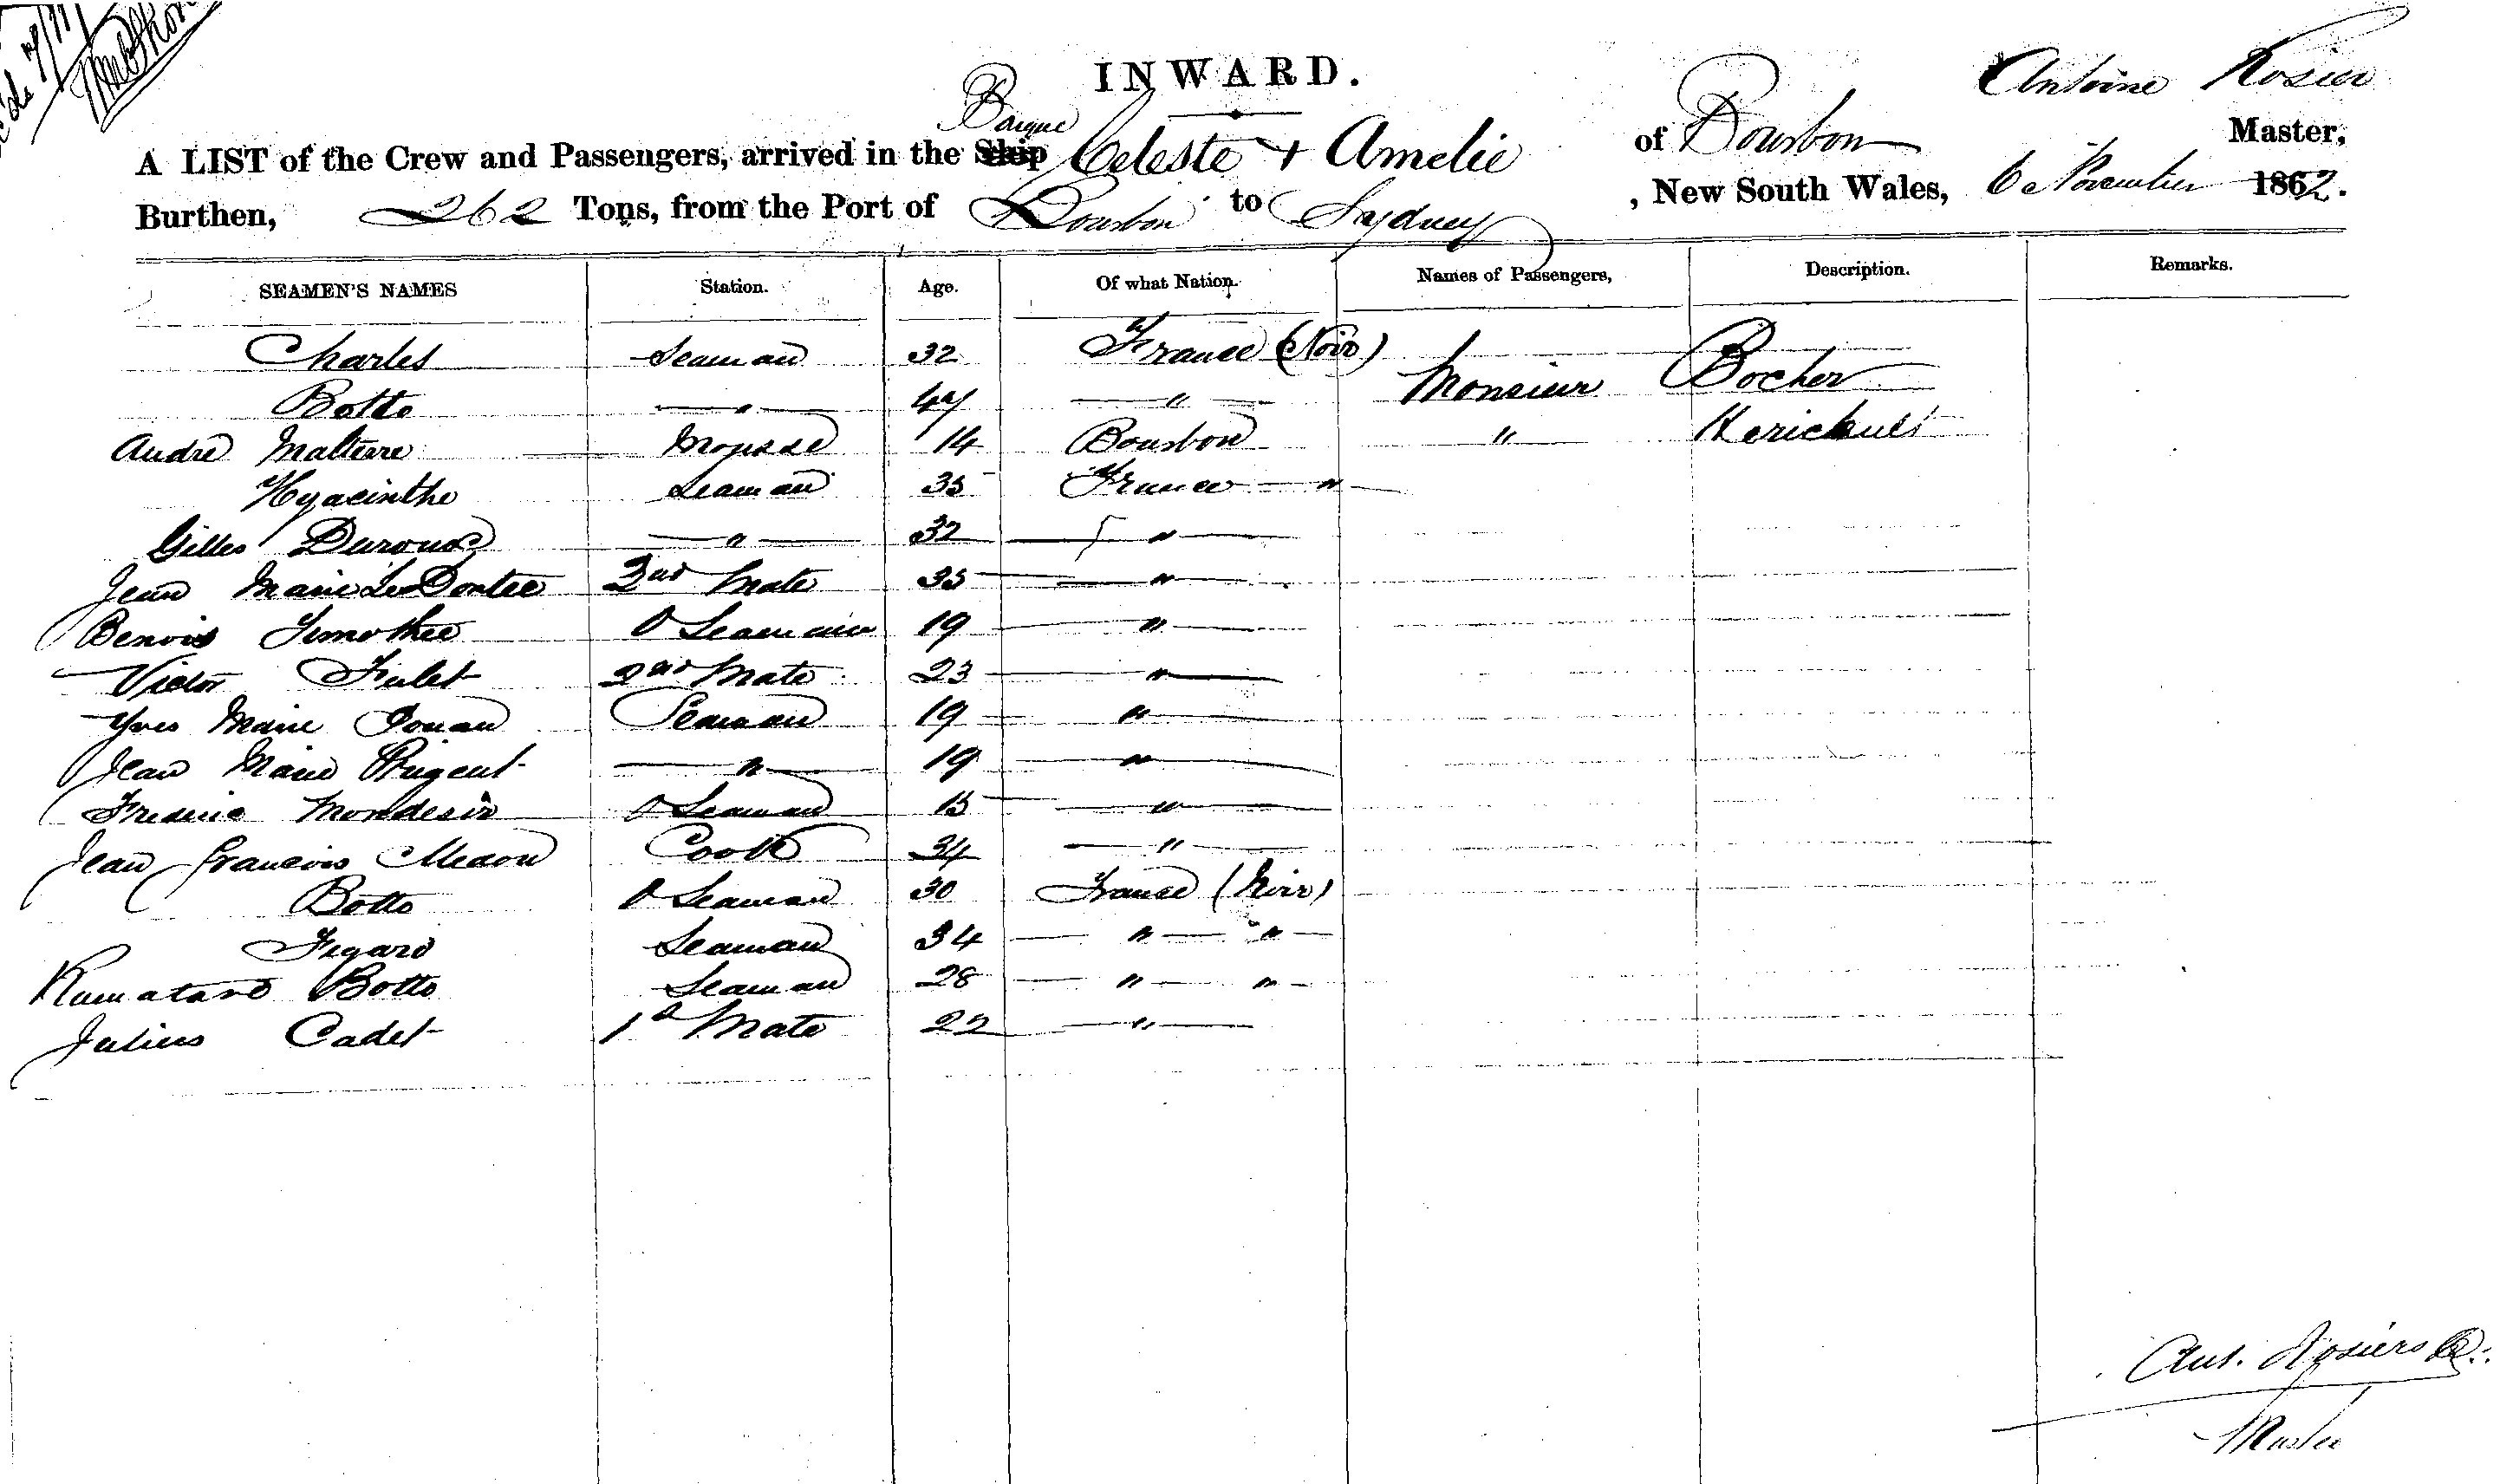 INWARD.
Antoine Rosier
Barque
A LIST of the Crew and Passengers, arrived in the Ship Celeste + Amelie of Bourbon Master,
Burthen, 262 Tons, from the Port of Bourbon to Sydney, New South Wales, 6 November 1862.
SEAMEN'S NAMES Station. Age. Of what Nation. Names of Passengers, Description. Remarks.
Charles Seaman 32 France (Noir)
Botto " " Monsieur Bocher
André Malterre Mousse 14 Bourbon "
Hyacinthe Seaman 35 France "
Gilles " 32 "
Jean Marie 2nd Mate 35 "
Benois Timothee O Seaman 19 "
Victor 2nd Mate 23 "
Yves Marie Seaman 19 "
Jean Marie Prigent " 19 "
Frederic Mondesir O Seaman "
Jean Francois Cook 34 "
Botto O Seaman 30 France (Noir)
Figaro Seaman 34 " "
Botto Seaman 28 " "
Julius Cadet 1st Mate 22 "
Ant. Rosiers
Master